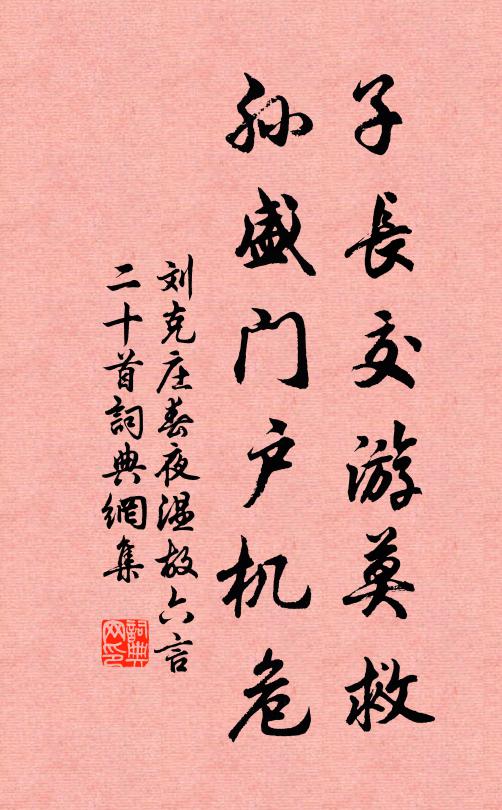 子長交游莫救
孙盛门户机危
刘克庄春夜温故六言
二十首詞典網集
詞典
网印